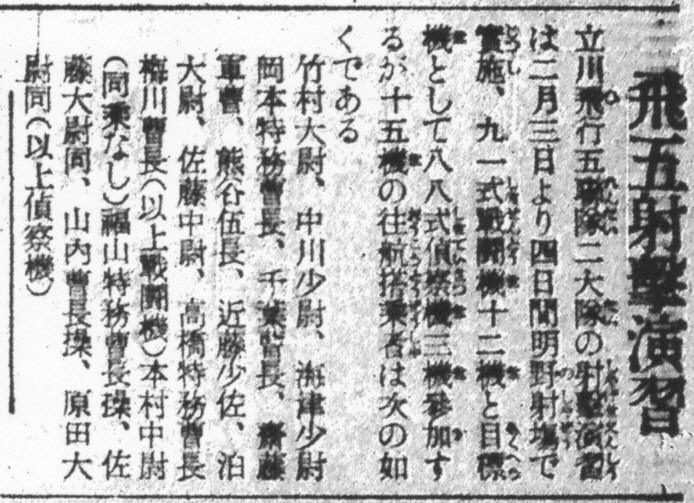 飛五射擊演習
立川飛行五聯隊二大隊の射擊演習
は二月三日より四日間明野射場で
實施、九一式戰鬪機十二機と目標
機として八八式偵察機三機參加す
るが十五機の往航搭乘者は次の如
くである
竹村大尉、中川少尉、海津少尉
岡本特務曹長、千葉曹長、齋藤
軍曹、熊谷伍長、近藤少佐、泊
大尉、佐藤中尉、高橋特務曹長
梅川曹長(以上戰鬪機)本村中尉
(同乘なし)福山特務曹長操、佐
藤大尉同、山內曹長操、原田大
尉同(以上偵察機)